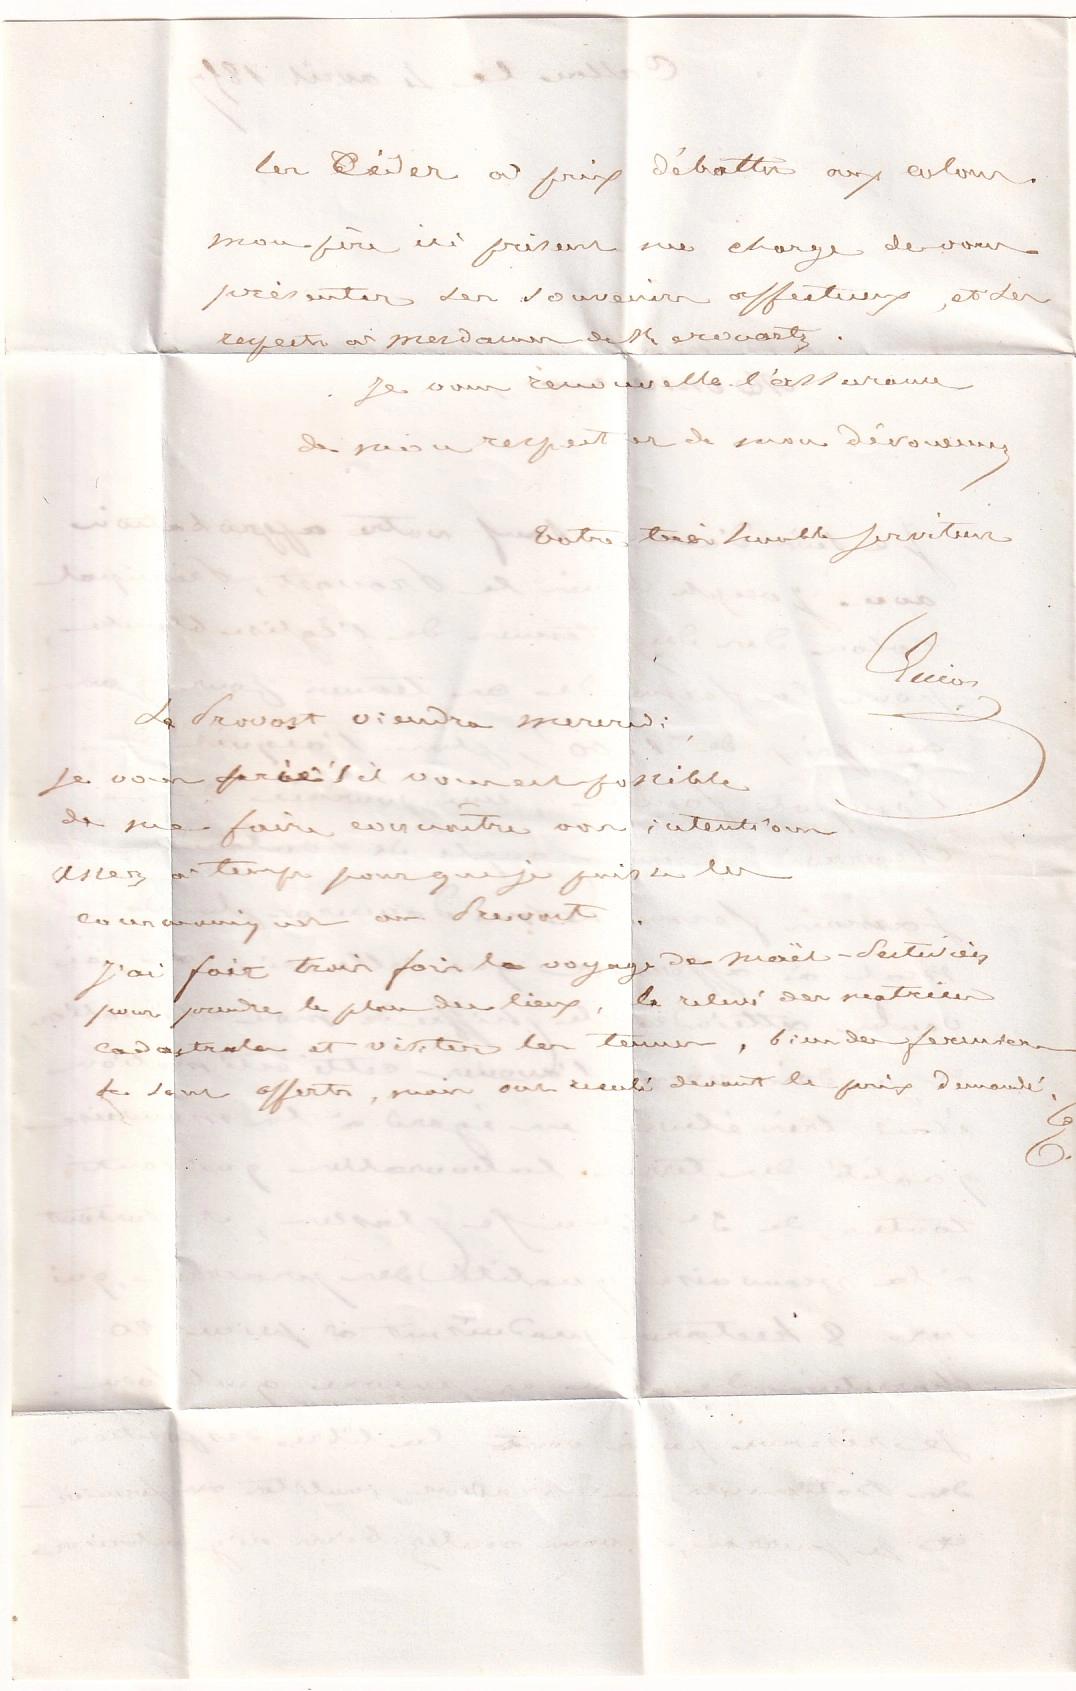 les Céder à prix débattu aux colons.
mon père ici présent me charge de vous
présenter ses souvenirs affectueux, et ses
respects à mesdames de
je vous renouvelle l'assurance
de mon respect et de mon dévouement
Votre très humble serviteur
Le Provost viendra mercredi
je vous prie s'il vous est possible
de me faire connaître vos intentions
assez à temps pour que je puisse les
communiquer au Prevost.
J'ai fait trois fois le voyage de maël-Pestivien
pour prendre le plan des lieux, le relevé des matrices
cadastrales et visiter les tenues, bien des fermiers
se sont offerts, mais ont reculé devant le prix demandé.